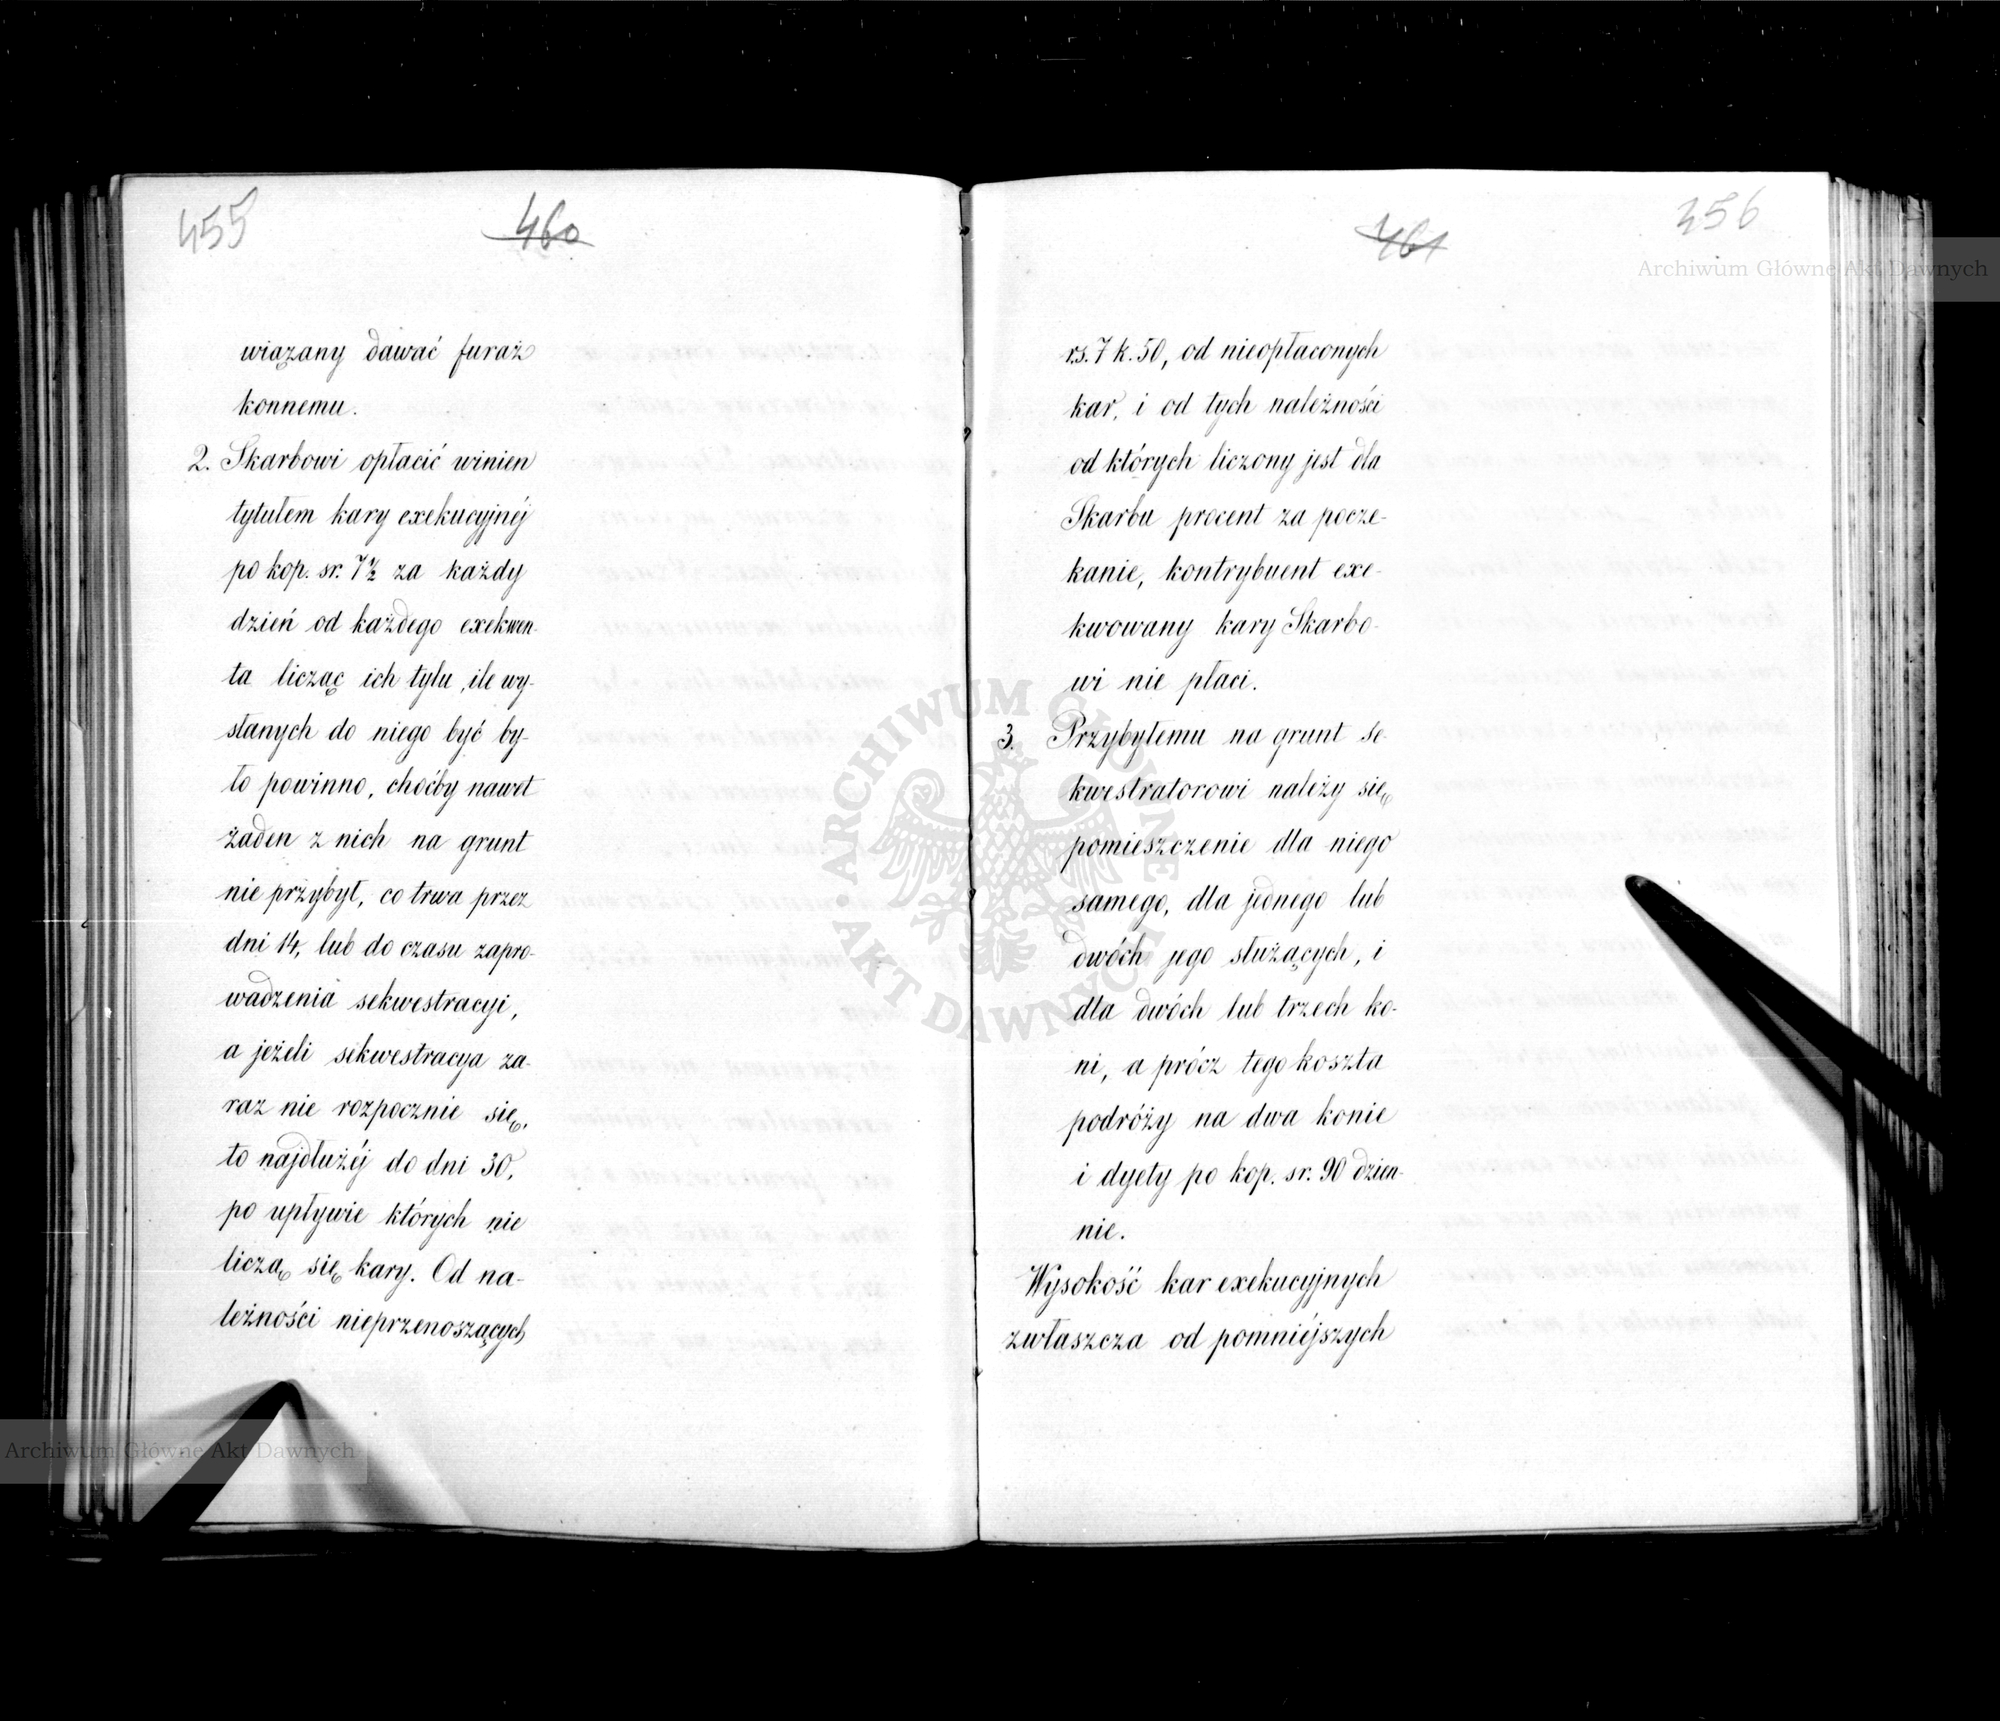 455
460
wiązany dawać furaż
konnemu.
2. Skarbowi opłacić winien
tytułem kary exekucyjnéj
po kop. sr. 7½ za każdy
dzień od każdego exekwen-
ta licząc ich tylu, ile wy-
słanych do niego być by-
ło powinno, choćby nawet
żaden z nich na grunt
nie przybył, co trwa przez
dni 14, lub do czasu zapro-
wadzenia sekwestracyi,
a jeżeli sekwestracya za-
raz nie rozpocznie się,
to najdłużéj do dni 30,
po upływie których nie
liczą się kary. Od na-
leżności nieprzenoszących
461
456
rs. 7 k. 50, od nieopłaconych
kar, i od tych należności
od których liczony jest dla
Skarbu procent za pocze-
kanie, kontrybuent exe-
kwowany kary Skarbo-
wi nie płaci.
3. Przybyłemu na grunt se-
kwestratorowi należy się
pomieszczenie dla niego
samego, dla jednego lub
dwóch jego służących, i
dla dwóch lub trzech ko-
ni, a prócz tego koszta
podróży na dwa konie
i dyety po kop. sr. 90 dzien-
nie.
Wysokość kar exekucyjnych
zwłaszcza od pomniéjszych
Archiwum Główne Akt Dawnych
ARCHIWUM GŁÓWNE
AKT DAWNYCH
Archiwum Główne Akt Dawnych